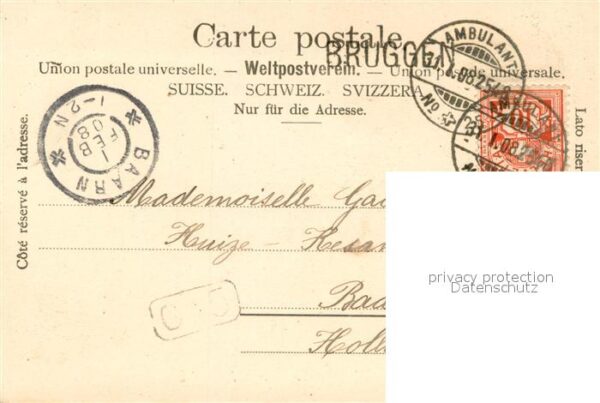 Carte postale.
BRUGGEN
Union postale universelle. — Weltpostverein. — Union postale universale.
SUISSE. SCHWEIZ. SVIZZERA
Nur für die Adresse.
Côté réservé à l'adresse.
Lato riser
AMBULANT
No
AMBULANT
31.I.08.
BAARN
1-2N
1
FEB
08
Mademoiselle
Huize-
Ba
Holl
privacy protection
Datenschutz